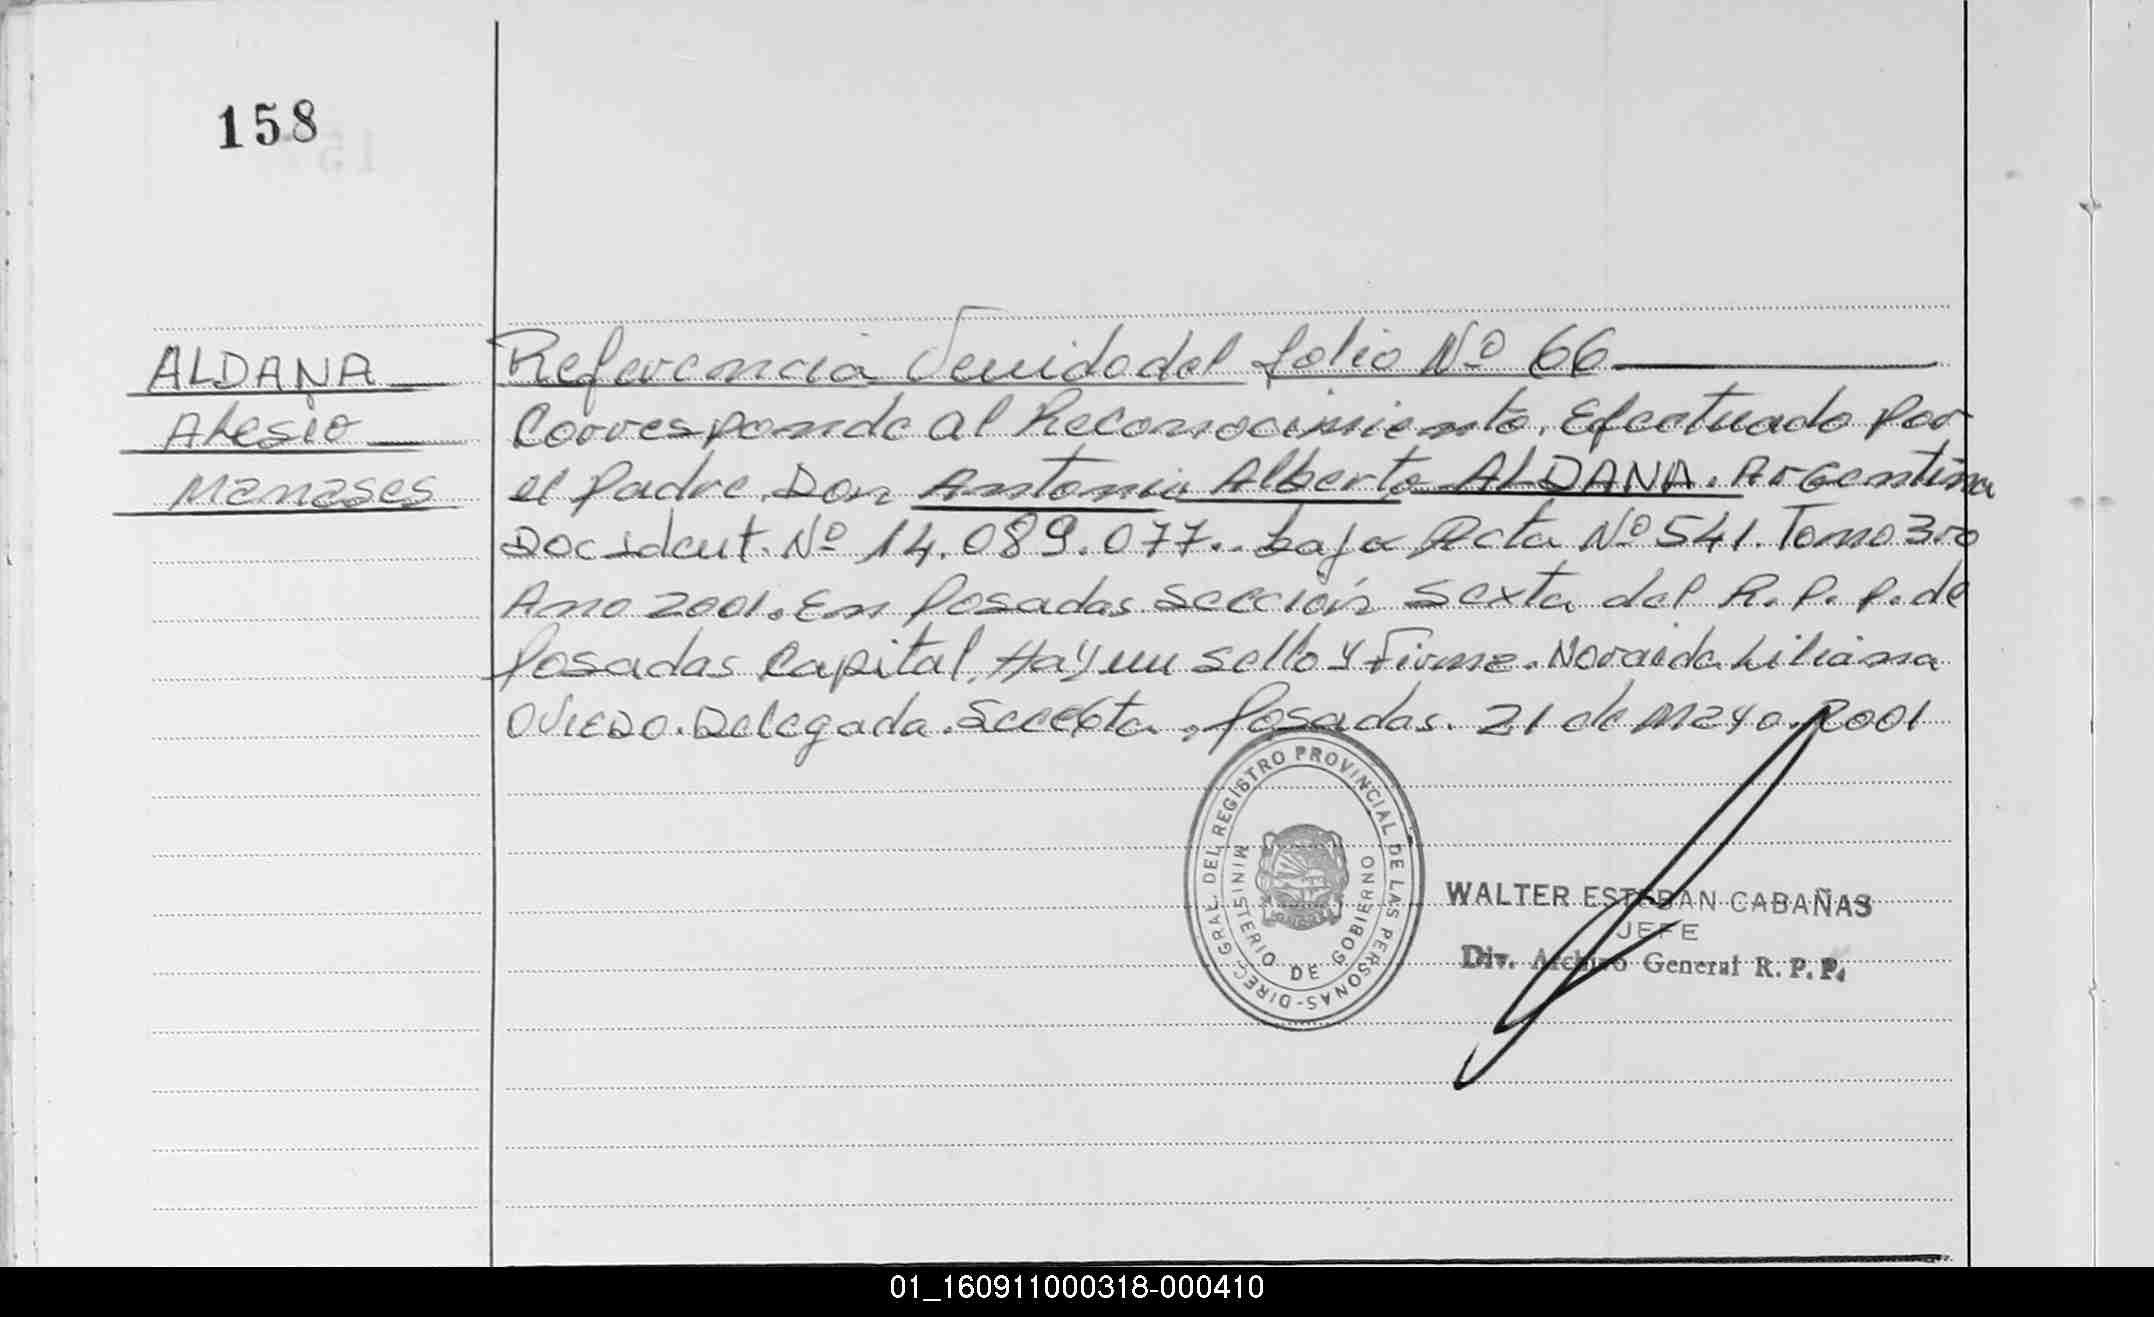 158
ALDANA
Alesio
Manases
Referencia Venido del folio Nº 66
Corresponde al Reconocimiento. Efectuado Por
el Padre Don Antonio Alberto ALDANA. Argentino
Doc Ident. Nº 14.089.077.. bajo Acta Nº 541. Tomo 3ro
Ano 2001. En Posadas sección Sexta del R. P. P. de
Posadas Capital. Hay un sello y Firma. Noraida Liliana
OVIEDO. Delegada. Posadas. 21 de Mayo. 2001
DIREC. GRAL. DEL REGISTRO PROVINCIAL DE LAS PERSONAS-
MINISTERIO DE GOBIERNO
WALTER ESTEBAN CABAÑAS
JEFE
Div. Archivo General R. P. P.
01_160911000318-000410